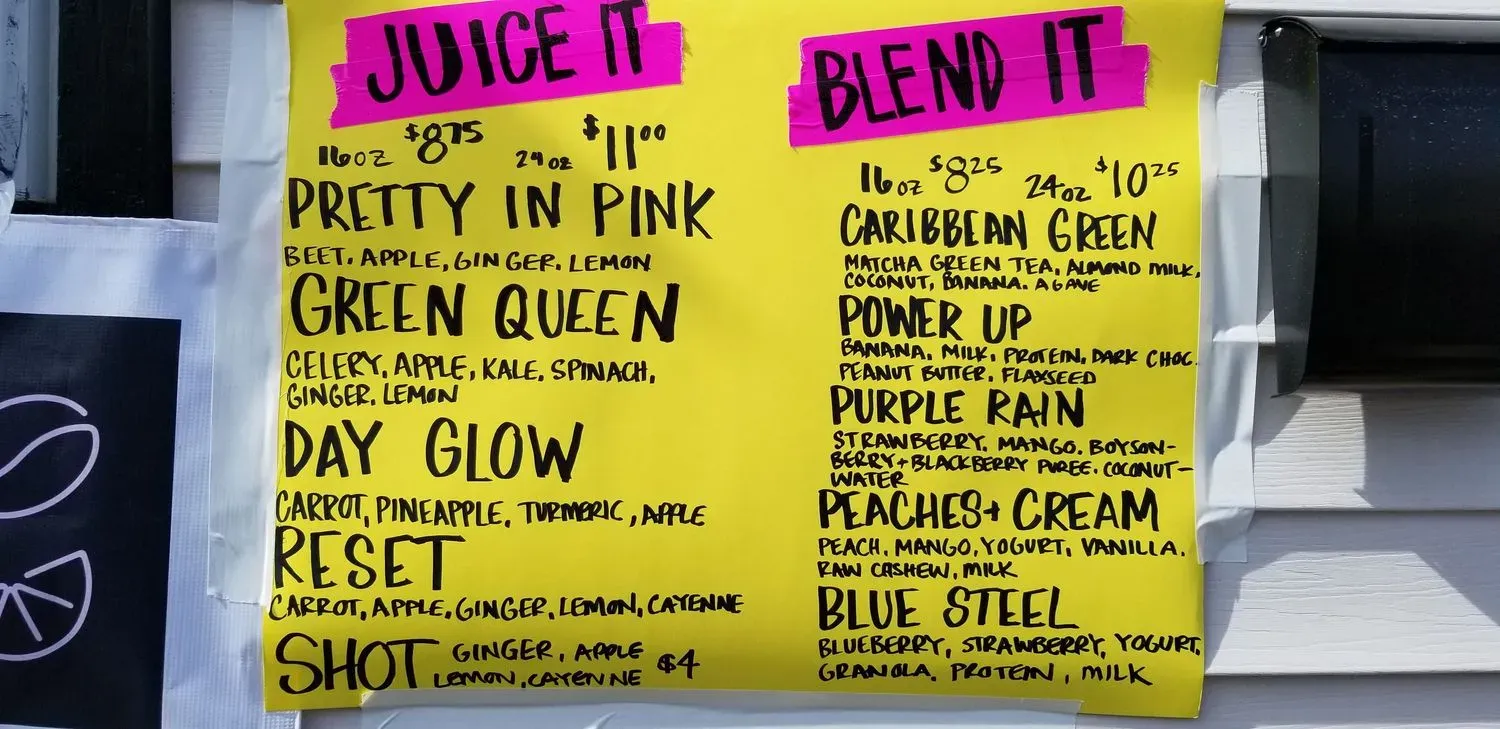 JUICE IT
16 OZ $8.75 24 OZ $11.00
PRETTY IN PINK
BEET, APPLE, GINGER, LEMON
GREEN QUEEN
CELERY, APPLE, KALE, SPINACH,
GINGER, LEMON
DAY GLOW
CARROT, PINEAPPLE, TURMERIC, APPLE
RESET
CARROT, APPLE, GINGER, LEMON, CAYENNE
SHOT GINGER, APPLE
LEMON, CAYENNE $4
BLEND IT
16 OZ $8.25 24 OZ $10.25
CARIBBEAN GREEN
MATCHA GREEN TEA, ALMOND MILK,
COCONUT, BANANA, AGAVE
POWER UP
BANANA, MILK, PROTEIN, DARK CHOC.
PEANUT BUTTER, FLAXSEED
PURPLE RAIN
STRAWBERRY, MANGO, BOYSON-
BERRY + BLACKBERRY PUREE, COCONUT-
WATER
PEACHES + CREAM
PEACH, MANGO, YOGURT, VANILLA,
RAW CASHEW, MILK
BLUE STEEL
BLUEBERRY, STRAWBERRY, YOGURT,
GRANOLA, PROTEIN, MILK